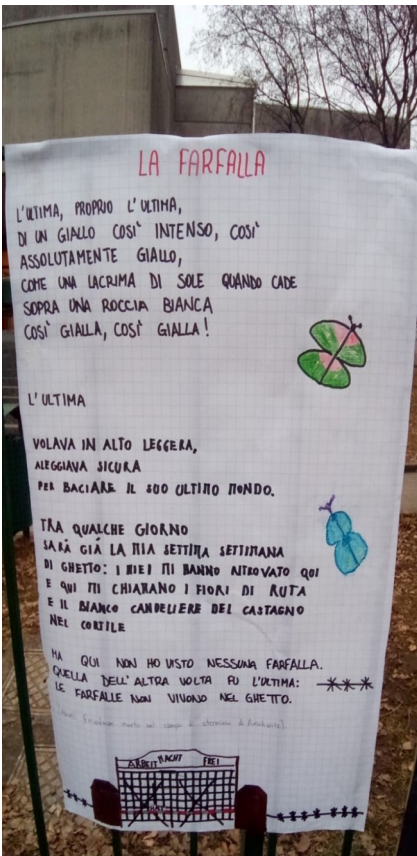 LA FARFALLA
L'ULTIMA, PROPRIO L'ULTIMA,
DI UN GIALLO COSI' INTENSO, COSI'
ASSOLUTAMENTE GIALLO,
COME UNA LACRIMA DI SOLE QUANDO CADE
SOPRA UNA ROCCIA BIANCA
COSI' GIALLA, COSI' GIALLA!
L'ULTIMA
VOLAVA IN ALTO LEGGERA,
ALEGGIAVA SICURA
PER BACIARE IL SUO ULTIMO MONDO.
TRA QUALCHE GIORNO
SARÀ GIÀ LA MIA SETTIMA SETTIMANA
DI GHETTO: I MIEI MI HANNO RITROVATO QUI
E QUI MI CHIAMANO I FIORI DI RUTA
E IL BIANCO CANDELIERE DEL CASTAGNO
NEL CORTILE
MA QUI NON HO VISTO NESSUNA FARFALLA.
QUELLA DELL'ALTRA VOLTA FU L'ULTIMA:
LE FARFALLE NON VIVONO NEL GHETTO.
morto nel campo di sterminio di Auschwitz).
ARBEIT MACHT FREI